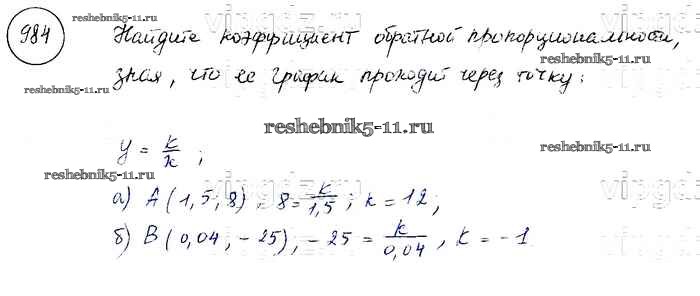 984 Найдите коэффициент обратной пропорциональности,
зная, что ее график проходит через точку:
reshebnik5-11.ru
reshebnik5-11.ru
reshebnik5-11.ru
reshebnik5-11.ru
y = k/x ;
reshebnik5-11.ru
reshebnik5-11.ru
а) A (1,5; 8), 8 = k/1,5 ; k = 12;
б) B (0,04; -25), -25 = k/0,04 , k = -1